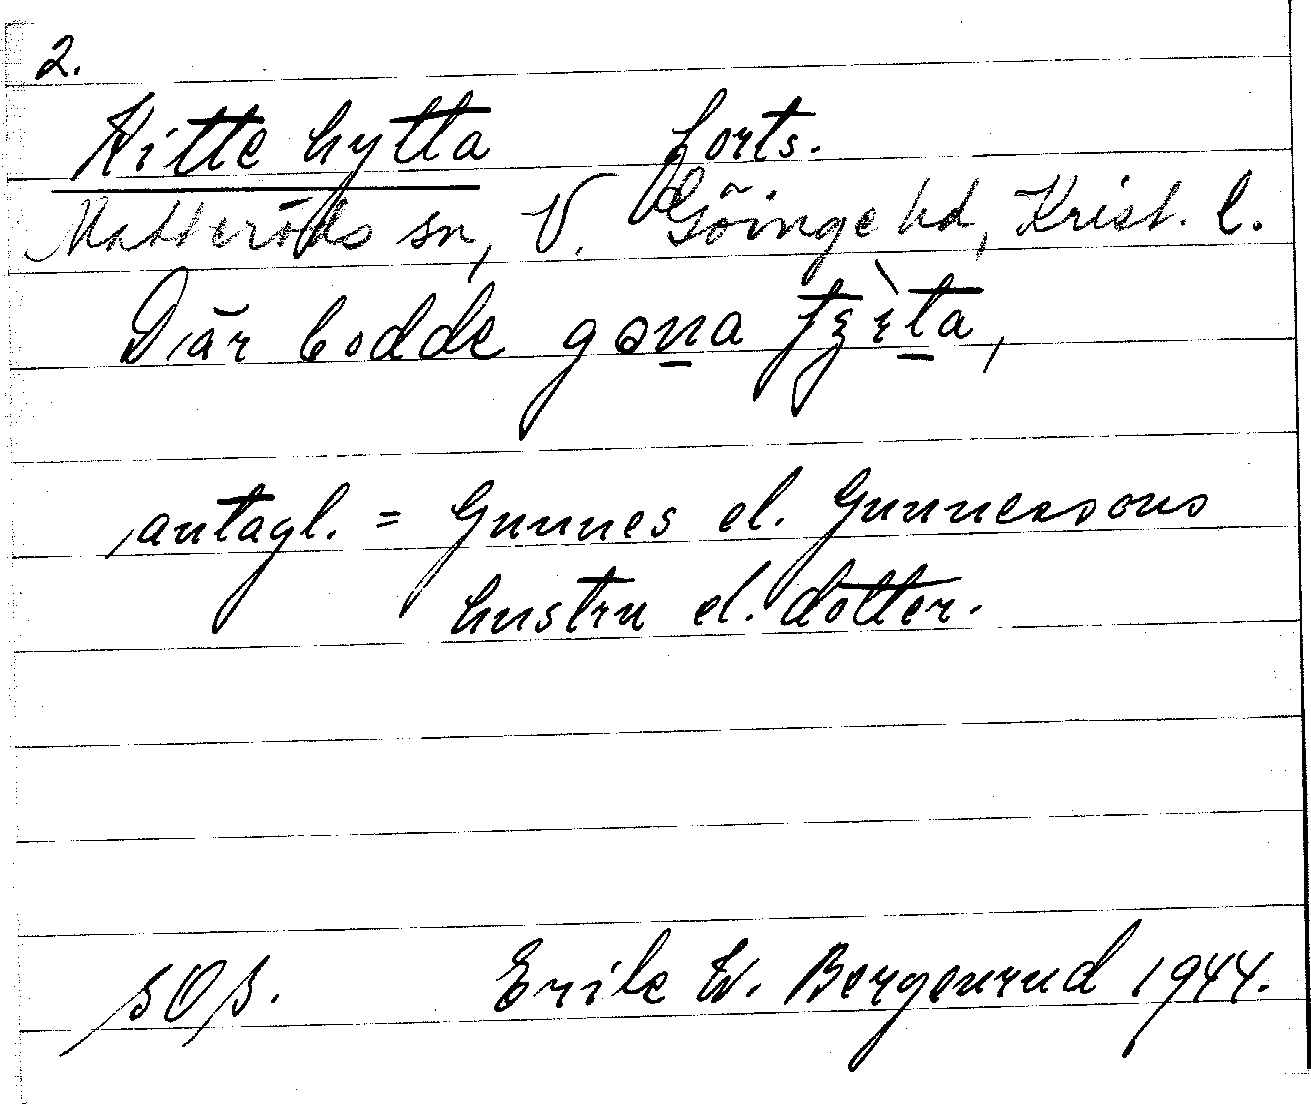 2.
Kitte hytta forts.
Matteröds sn, V. Göinge hd, Krist. l.
Där bodde
antagl. = Gunnes el. Gunnessons
hustru el. dotter.
SOS. Erik W. Bergenrud 1944.